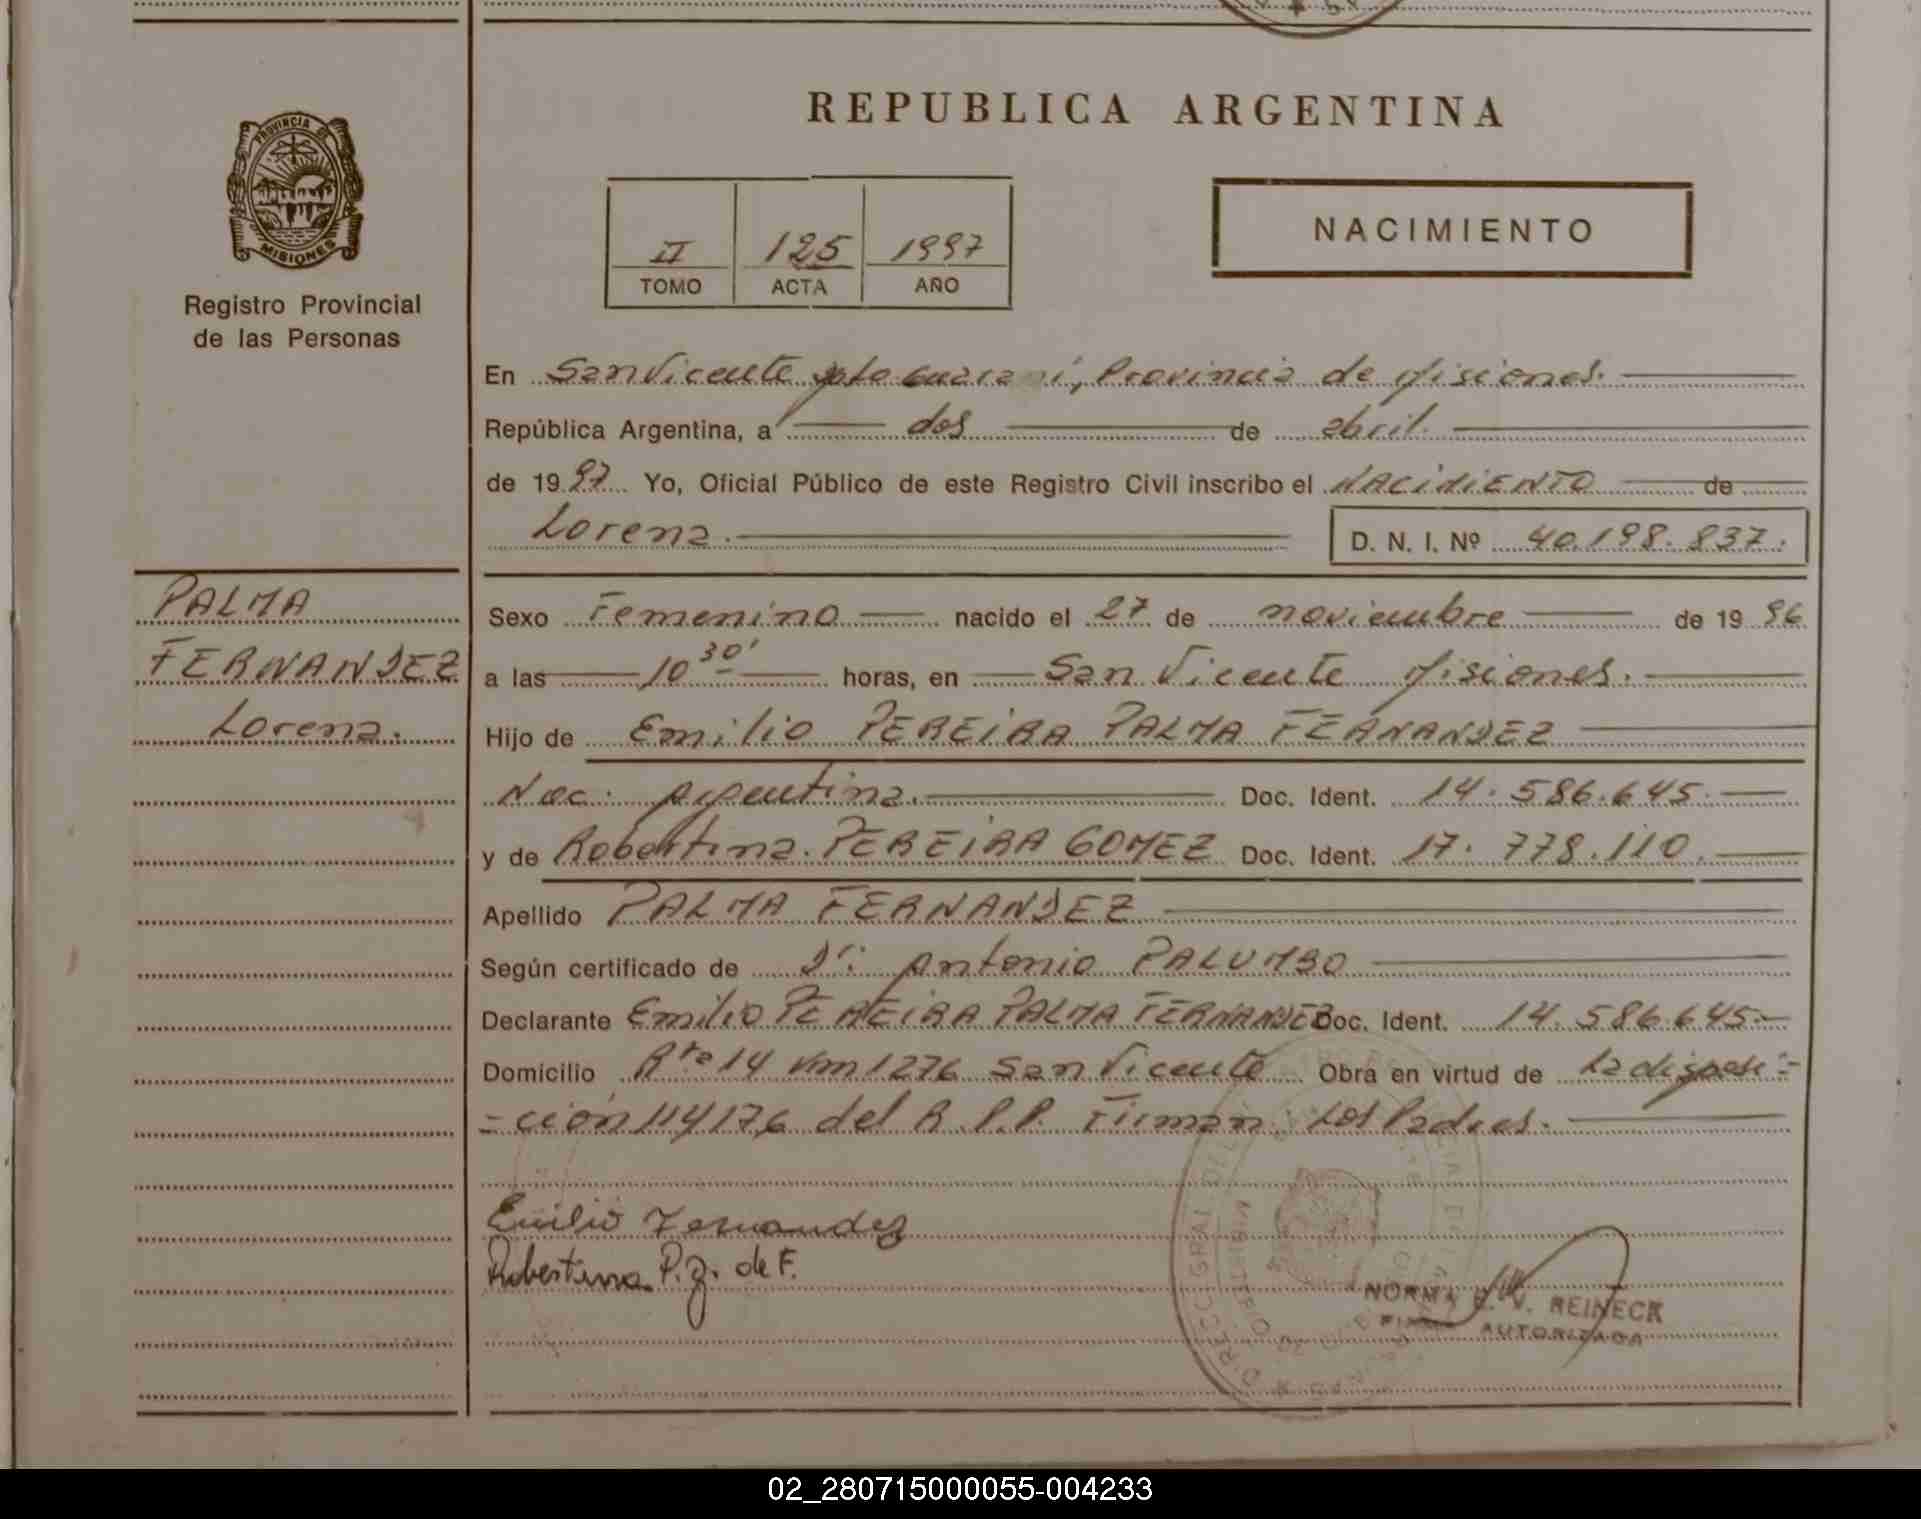 REPUBLICA ARGENTINA
PROVINCIA DE
MISIONES
Registro Provincial
de las Personas
II 125 1997
TOMO ACTA AÑO
NACIMIENTO
En San Vicente Dpto Guaraní, Provincia de Misiones.
República Argentina, a dos de abril.
de 1997 Yo, Oficial Público de este Registro Civil inscribo el NACIMIENTO de
Lorena. D. N. I. Nº 40.198.837.
PALMA
FERNANDEZ
Lorena.
Sexo Femenino nacido el 27 de noviembre de 1996
a las 10 30' horas, en San Vicente Misiones.
Hijo de Emilio PEREIRA PALMA FERNANDEZ
Nac. Argentina. Doc. Ident. 14.586.645.
y de Robertina PEREIRA GOMEZ Doc. Ident. 17.778.110.
Apellido PALMA FERNANDEZ
Según certificado de Dr. Antonio PALUMBO
Declarante Emilio PEREIRA PALMA FERNANDEZ Doc. Ident. 14.586.645
Domicilio Rta 14 Km 1276 San Vicente Obra en virtud de la disposi-
-ción 114/76 del R.P.P. Firman: Los Padres.
Emilio Fernandez
Robertina P. g. de F.
NORMA E. V. REINECK
AUTORIZADA
02_280715000055-004233